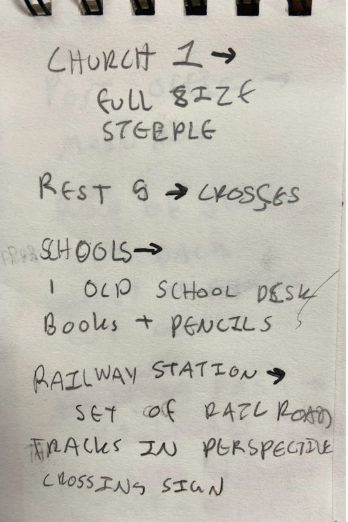 CHURCH 1 →
FULL SIZE
STEEPLE
REST 8 → CROSSES
SCHOOLS →
1 OLD SCHOOL DESK
BOOKS + PENCILS
RAILWAY STATION →
SET OF RAILROAD
TRACKS IN PERSPECTIVE
CROSSING SIGN